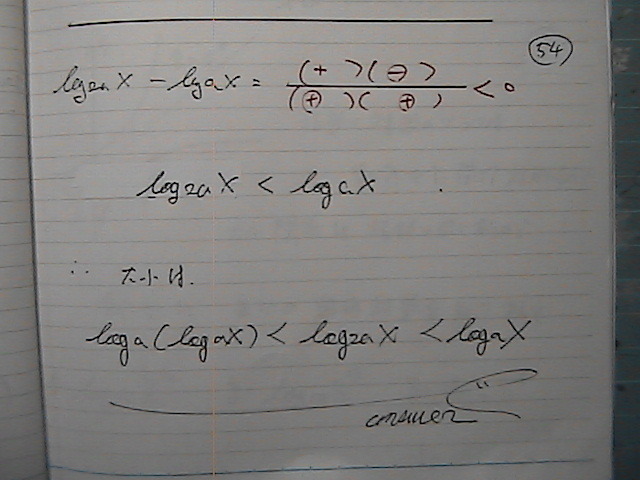 54
log2a X - logaX = (+ )(⊖) / (⊕ )( ⊕ ) < 0
log2a X < loga X .
∴ 大小は.
loga(logaX) < log2aX < logaX
answer